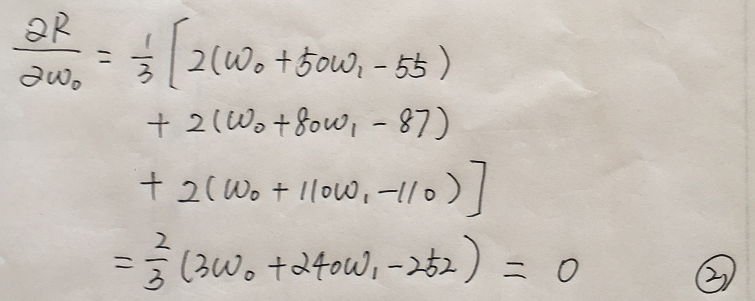 ∂R/∂w₀ = 1/3 [ 2(w₀ + 50w₁ - 55)
+ 2(w₀ + 80w₁ - 87)
+ 2(w₀ + 110w₁ - 110) ]
= 2/3 (3w₀ + 240w₁ - 252) = 0 ②